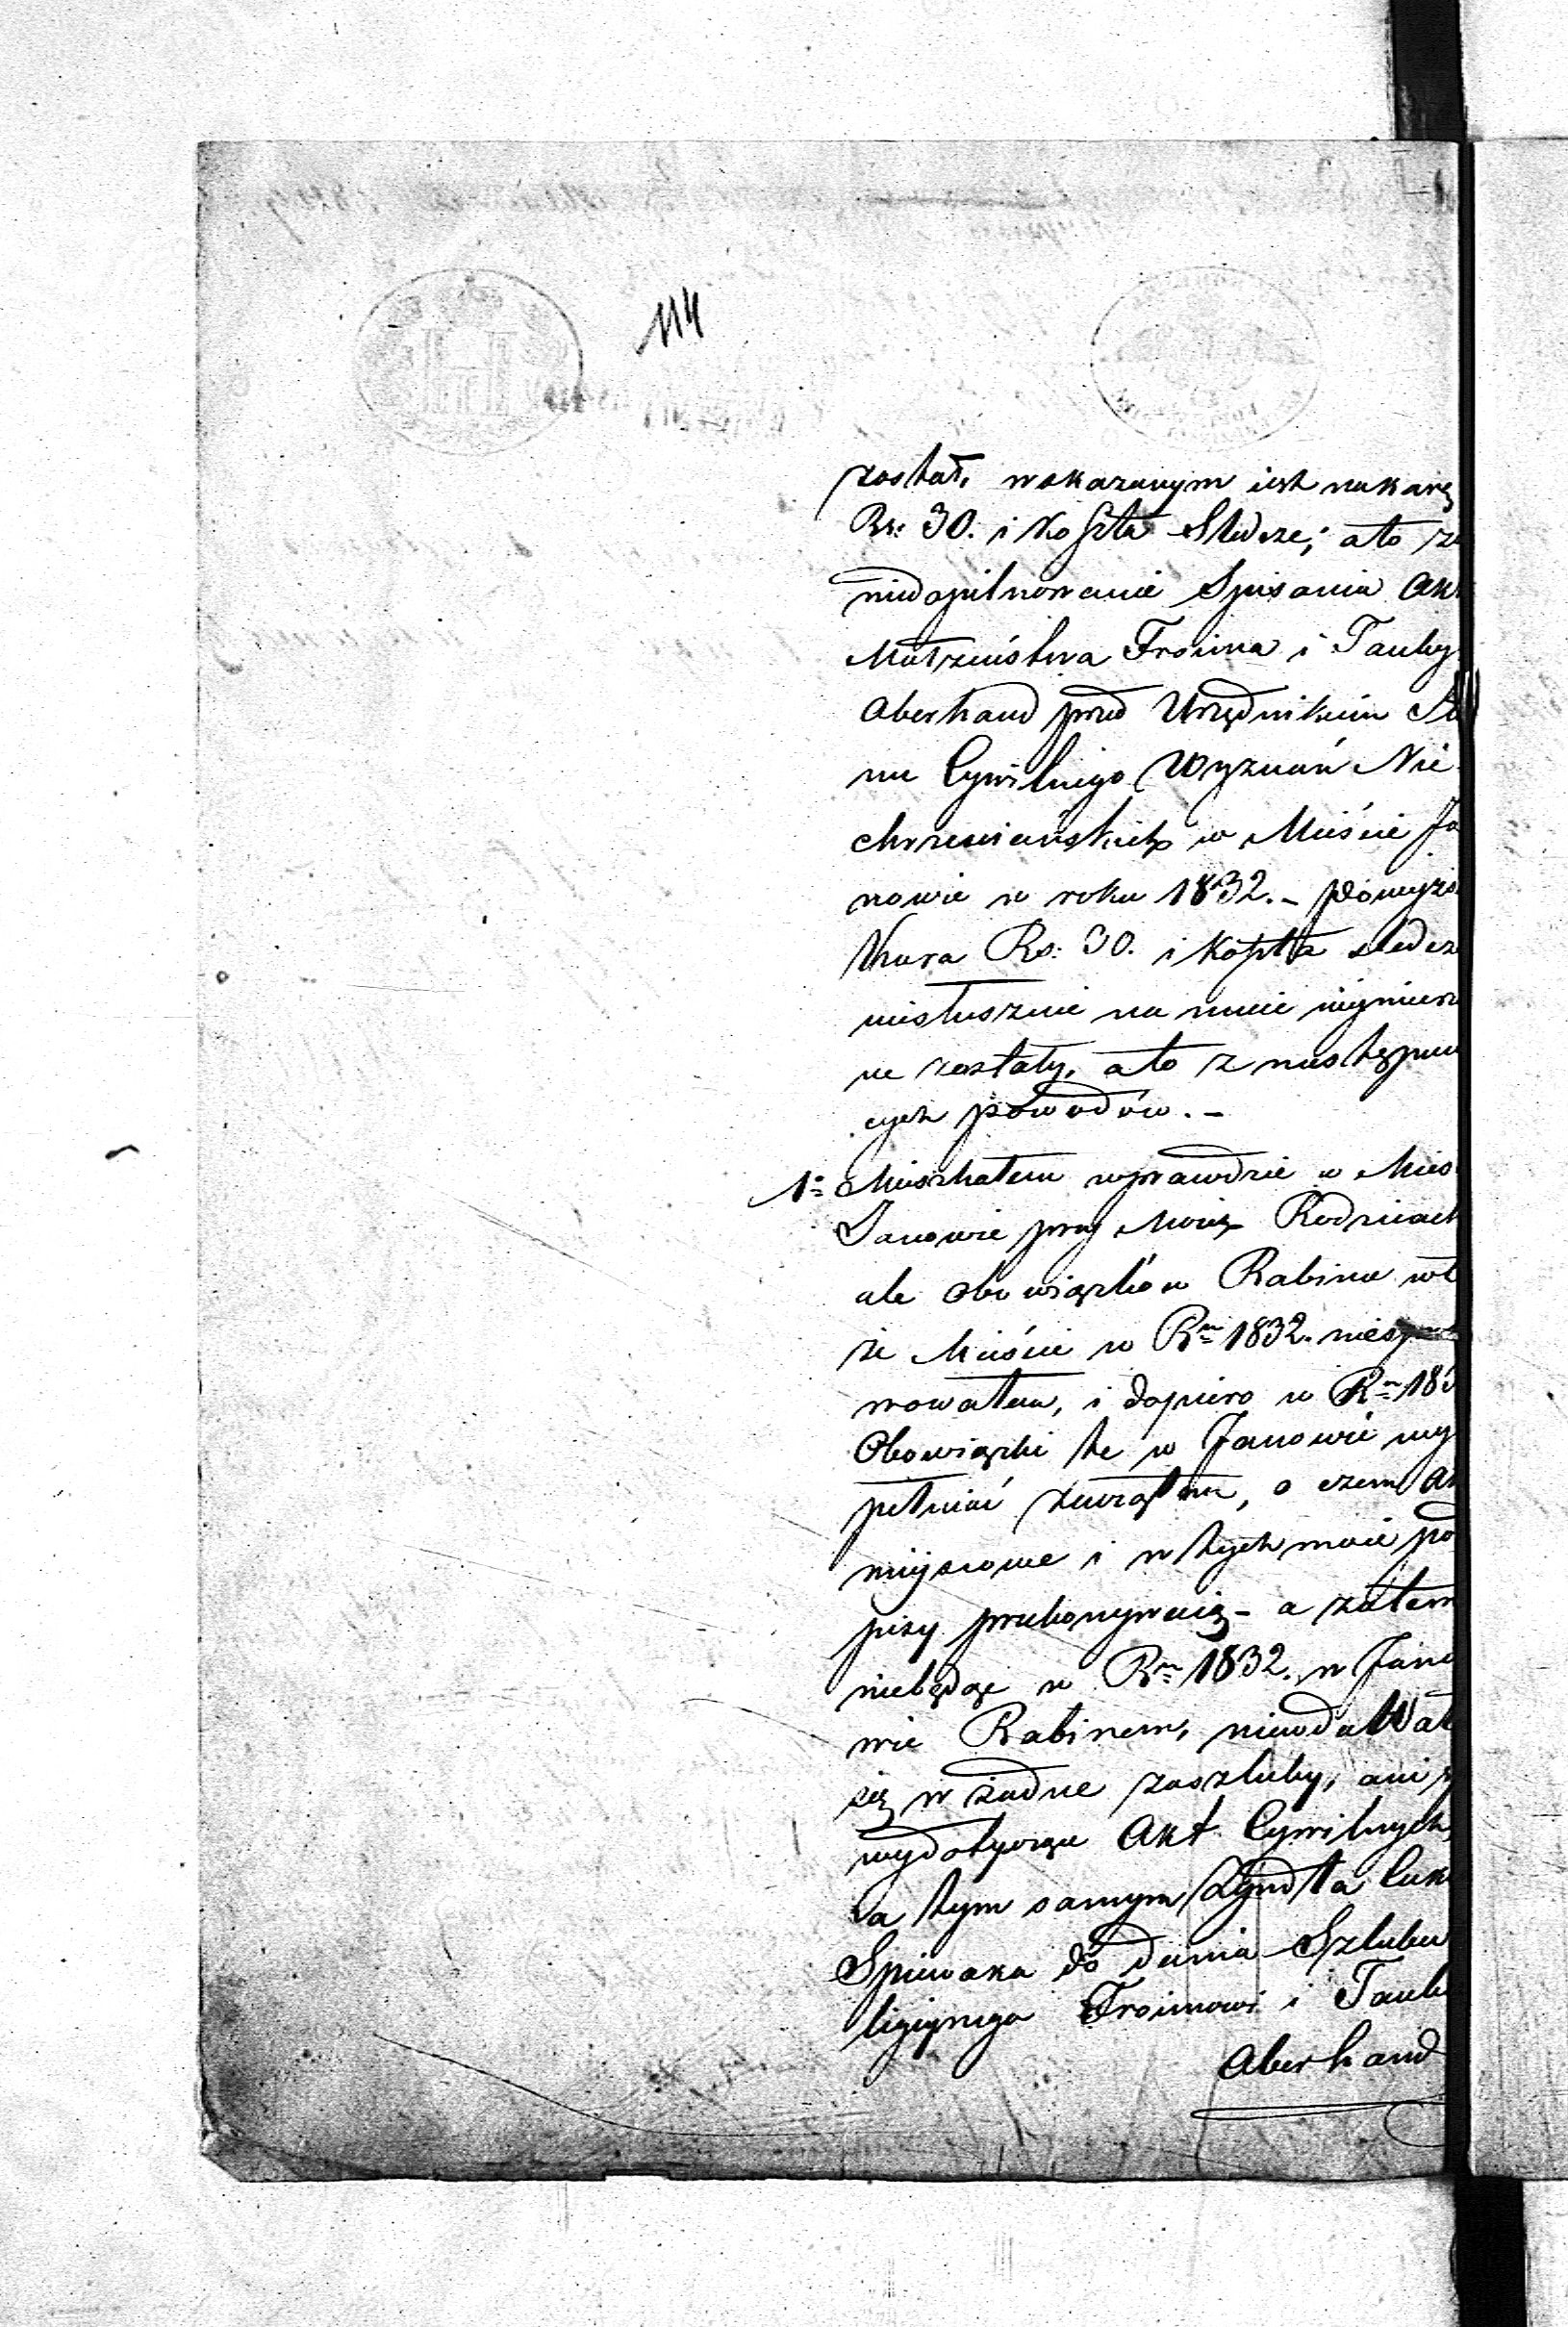 114
został, wskazanym iest na karę
Rs: 30. i koszta Śledcze; ato za
niedopilnowanie Spisania Akt
Małżeństwa Froima i Tauby
Aberhand przed Urzędnikiem Sta
nu Cywilnego Wyznań Nie
chrześciańskich w Mieście Ja
nowie w roku 1832. – Powyższa
Kara Rs: 30. i koszta śledcze
niesłusznie na mnie
ne zostały, ato z następuią
cych powodów. –
1o Mieszkałem wprawdzie w Mieś
Janowie przy Moich Rodzicach
ale obowiązków Rabina w t
że Mieście w Ru 1832. niespra
wowałem, i dopiero w Ru 183
Obowiązki te w Janowie wy
pełniać zacząłem, o czem Ak
mijscowe i w tych moie pod
pisy przekonywaią – a zatem
niebędąc w Ru 1832. w Jano
wie Rabinem, niewdawał
się w żadne zaszluby, ani w
wydotyczące Akt Cywilnych,
a tym samym
Spiewaka do dania Szlubu
ligiynego Froimowi i Taub
Aberhand